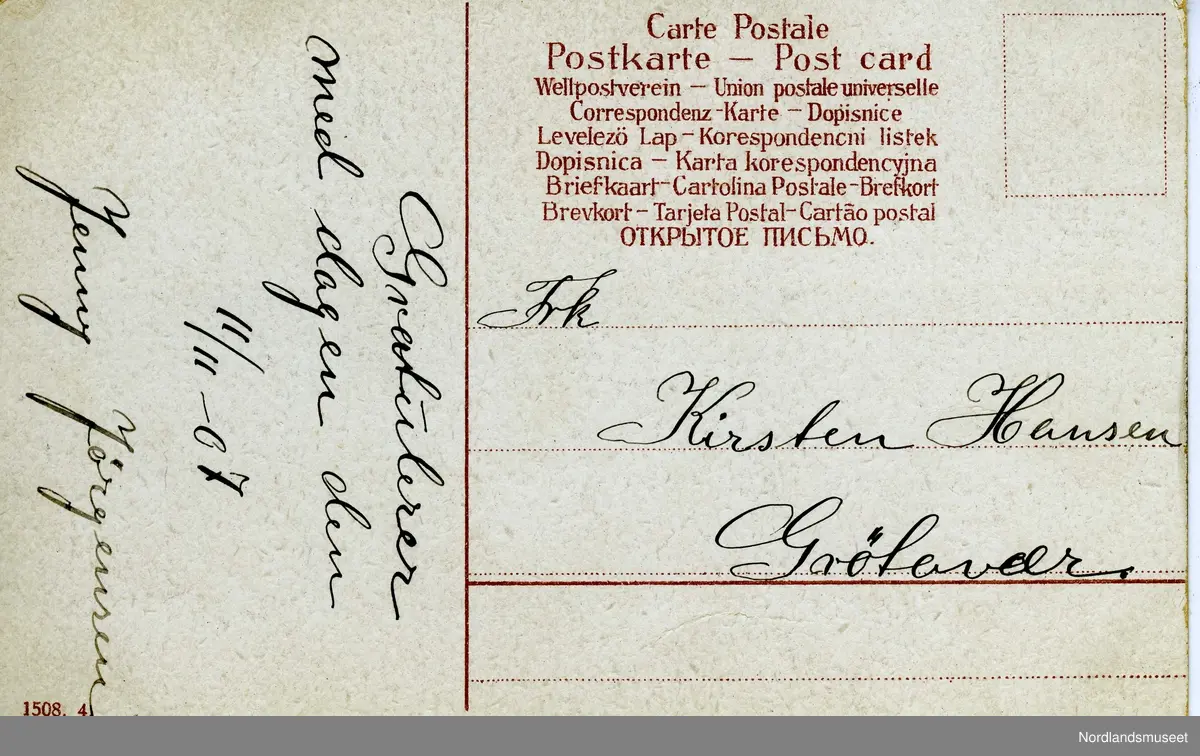 Carte Postale
Postkarte — Post card
Weltpostverein — Union postale universelle
Correspondenz-Karte — Dopisnice
Levelező Lap — Korespondencni listek
Dopisnica — Karta korespondencyjna
Briefkaart — Cartolina Postale — Brefkort
Brevkort — Tarjeta Postal — Cartão postal
ОТКРЫТОЕ ПИСЬМО.
Gratulerer
med dagen den
11/11-07
Jenny Jörgensen
Frk
Kirsten Hansen
Grötavær.
1508. 4
Nordlandsmuseet